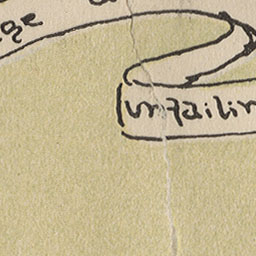 ge
unfailin